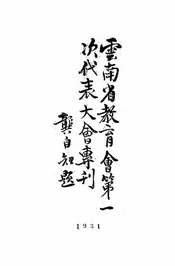 雲南省教育會第一
次代表大會專刊
龔自知題
1931